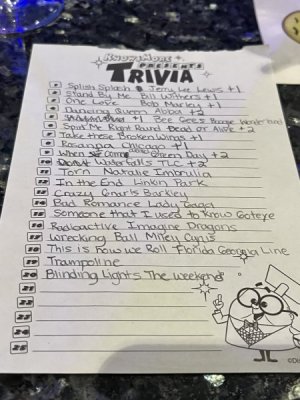 KNOWS MORE
PRESENTS
TRIVIA
1 Splish Splash Jerry Lee Lewis +1
2 Stand By Me Bill Withers +1
3 One Love Bob Marley +1
4 Dancing Queen Abba +2
5 +1 Bee Gees Boogie Wonderland
6 Spin Me Right Round Dead or Alive +2
7 Take these Broken Wings +1
8 Rosanna Chicago +1
9 When Come Around Green Day +2
10 Waterfalls TLC +2
11 Torn Natalie Imbrulia
12 In the End Linkin Park
13 Crazy Gnarls Barkley
14 Bad Romance Lady Gaga
15 Someone that I used to know Goteye
16 Radioactive Imagine Dragons
17 Wrecking Ball Miley Cyrus
18 This is How we Roll Florida Georgia Line
19 Trampoline
20 Blinding Lights The weekend
21
22
23
24
25